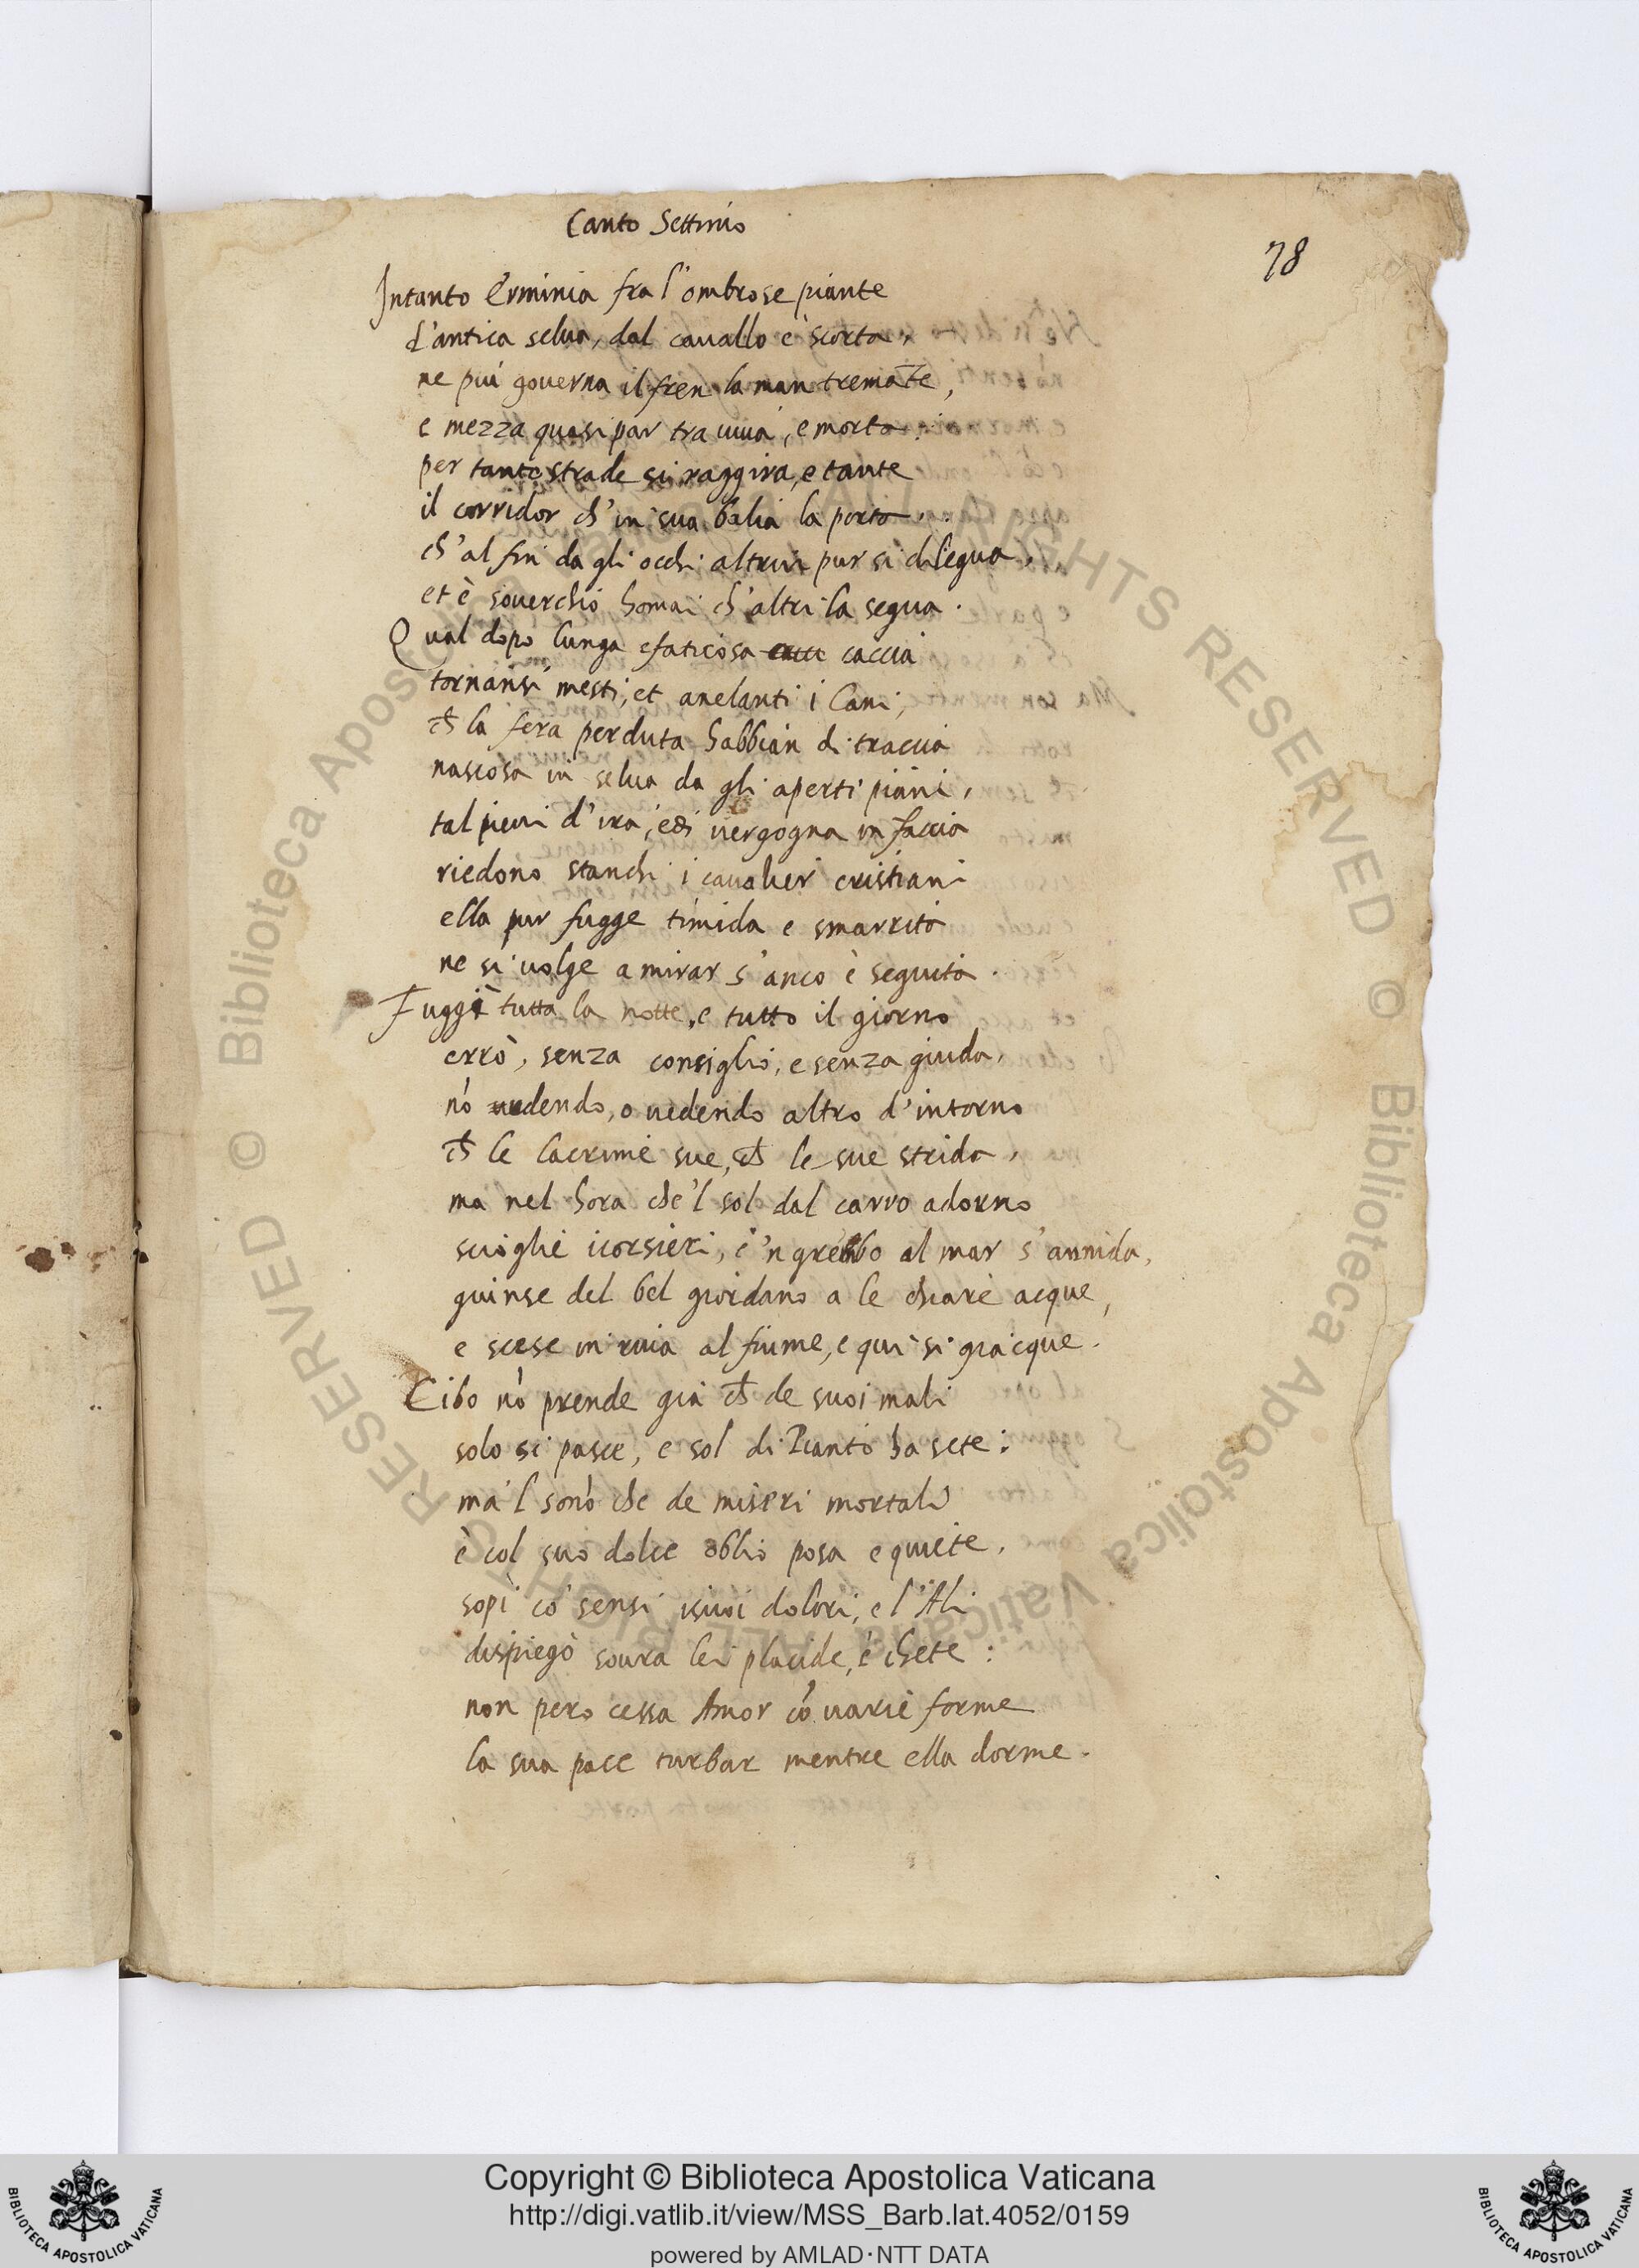 Canto Settimo
78
Intanto Erminia fra l'ombrose piante
d'antica selua, dal cauallo è scorta,
ne piu governa il fren la man tremāte,
e mezza quasi par tra viua, e morta.
per tante strade si raggira, e tante
il corridor ch'in sua balia la porta,
ch'al fin da gli occhi altrui pur si dilegua,
et è souerchio homai ch'altri la segua.
Qual dopo lunga e faticosa caccia
tornansi mesti, et anelanti i Cani,
ch̄ la fera perduta habbian di traccia
nascosa in selua da gli aperti piani,
tal pieni d'ira, e di uergogna in faccia
riedono stanchi i caualier cristiani
ella pur fugge timida e smarrita
ne si uolge a mirar s'anco è seguita.
Fuggì tutta la notte, e tutto il giorno
errò, senza consiglio, e senza giuda,
nō udendo, o uedendo altro d'intorno
ch̄ le lacrime sue, ch̄ le sue strida,
ma nel hora che'l sol dal carro adorno
scioglie i corsieri, e 'n grembo al mar s'annida,
guinse del bel giordano a le chiare acque,
e scese in riua al fiume, e qui si giacque.
Cibo nō prende già ch̄ de suoi mali
solo si pasce, e sol di Pianto ha sete:
ma'l sonō che de miseri mortali
è col suo dolce oblio posa e quiete,
sopì co' sensi i suoi dolori, e l'Ali
dispiegò soura lei placide, e chete:
non pero cessa Amor cō uarie forme
la sua pace turbar mentre ella dorme.
© Biblioteca Apostolica Vaticana ALL RIGHTS RESERVED
© Biblioteca Apostolica Vaticana ALL RIGHTS RESERVED
BIBLIOTECA APOSTOLICA VATICANA
Copyright © Biblioteca Apostolica Vaticana
http://digi.vatlib.it/view/MSS_Barb.lat.4052/0159
powered by AMLAD·NTT DATA
BIBLIOTECA APOSTOLICA VATICANA